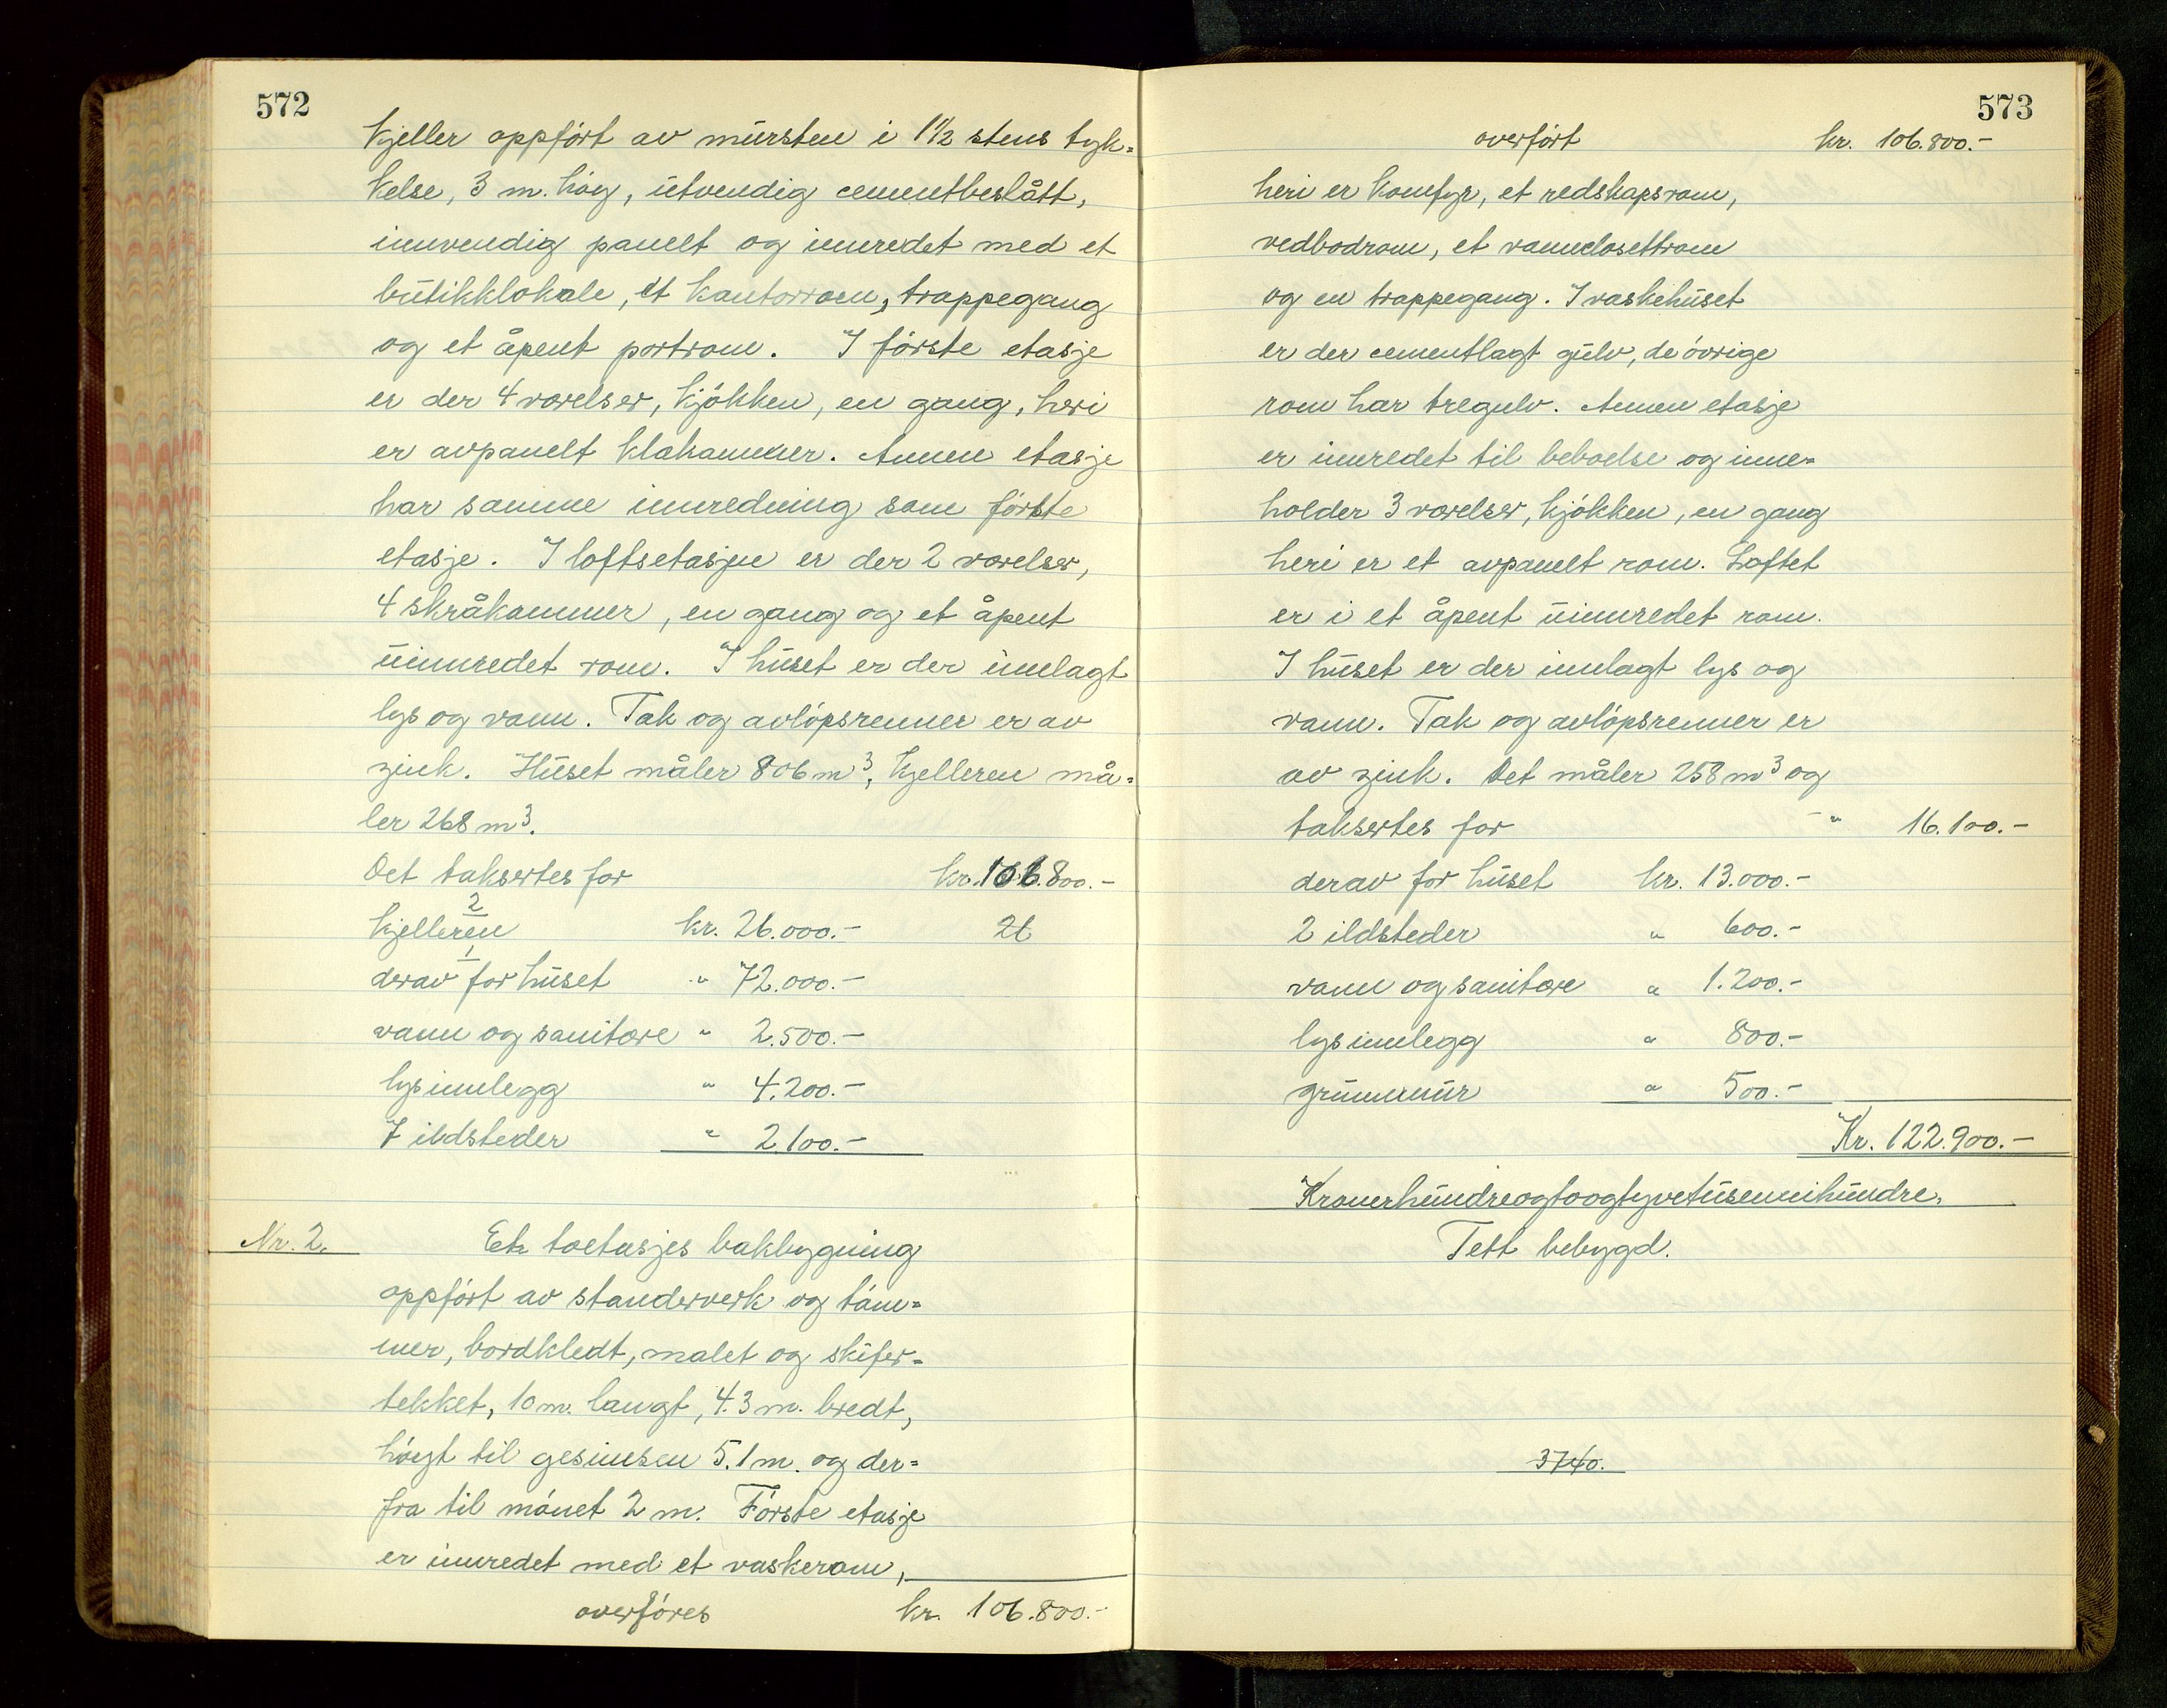 572
Kjeller oppført av mursten i 1½ stens tyk=
kelse, 3 m. høg, utvendig cementbeslått,
innvendig panelt og innredet med et
butikklokale, et kontorrom, trappegang
og et åpent portrom. I første etasje
er der 4 værelser, kjøkken, en gang, heri
er avpanelt klækammer. Annen etasje
har samme innredning som første
etasje. I loftsetasjen er der 2 værelser,
4 skråkammer, en gang og et åpent
uinnredet rom. I huset er der innlagt
lys og vann. Tak og avløpsrenner er av
zink. Huset måler 806 m³, kjelleren må=
ler 268 m³.
Det taksertes for kr. 106.800.-
2
kjelleren kr. 26.000.- 26
1
derav for huset " 72.000.-
vann og sanitære " 2.500.-
lysinnlegg " 4.200.-
7 ildsteder " 2.100.-
Nr. 2. Et toetasjes bakbygning
oppført av standerverk og tøm=
mer, bordkledt, malet og skifer=
tekket, 10 m. langt, 4.3 m. bredt,
høgt til gesimsen 5.1 m. og der=
fra til mønet 2 m. Første etasje
er innredet med et vaskerom,
overføres kr. 106.800.-
573
overført kr. 106.800.-
heri er komfyr, et redskapsrom,
vedbodrom, et vannclosettrom
og en trappegang. I vaskehuset
er der cementlagt gulv, de øvrige
rom har tregulv. Annen etasje
er innredet til beboelse og inne=
holder 3 værelser, kjøkken, en gang
heri er et avpanelt rom. Loftet
er i et åpent uinnredet rom.
I huset er der innlagt lys og
vann. Tak og avløpsrenner er
av zink. Det måler 258 m³ og
taksertes for " 16.100.-
derav for huset kr. 13.000.-
2 ildsteder " 600.-
vann og sanitære " 1.200.-
lysinnlegg " 800.-
grunnmur " 500.-
Kr. 122.900.-
Kronerhundreogtoogtyvetusennihundre.
Tett bebygd.
3740.